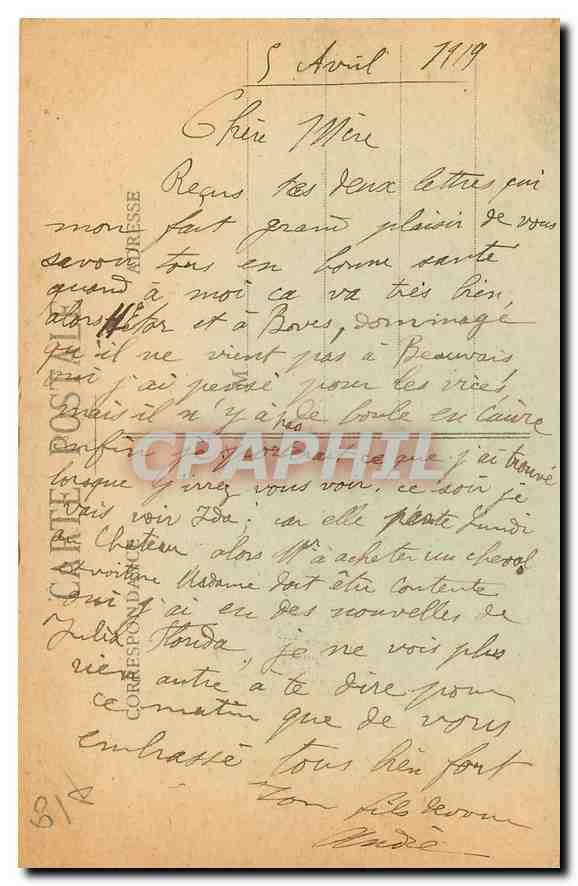 5 Avril 1919
Chère Mère
Reçus tes deux lettres, qui
mon fait grand plaisir de vous
savoir tous en bonne santé
quand à moi ça va très bien,
alors et à Boves, dommage
qu'il ne vient pas à Beauvais
oui j'ai pensé pour les vices
mais il n'y à pas de boule en cuivre
enfin je porterait ce que j'ai trouvé
lorsque j'irrez vous voir, ce soir je
vais voir Ida; car elle Lundi
au Chateau alors Mr à acheter un cheval
voiture Madame doit être contente
oui j'ai eu des nouvelles de
Julia Florida, je ne vois plus
rien autre à te dire pour
ce matin que de vous
embrassé tous bien fort
Ton fils
André
CARTE POSTALE
CORRESPONDANCE
ADRESSE
M
CPARAPHIL